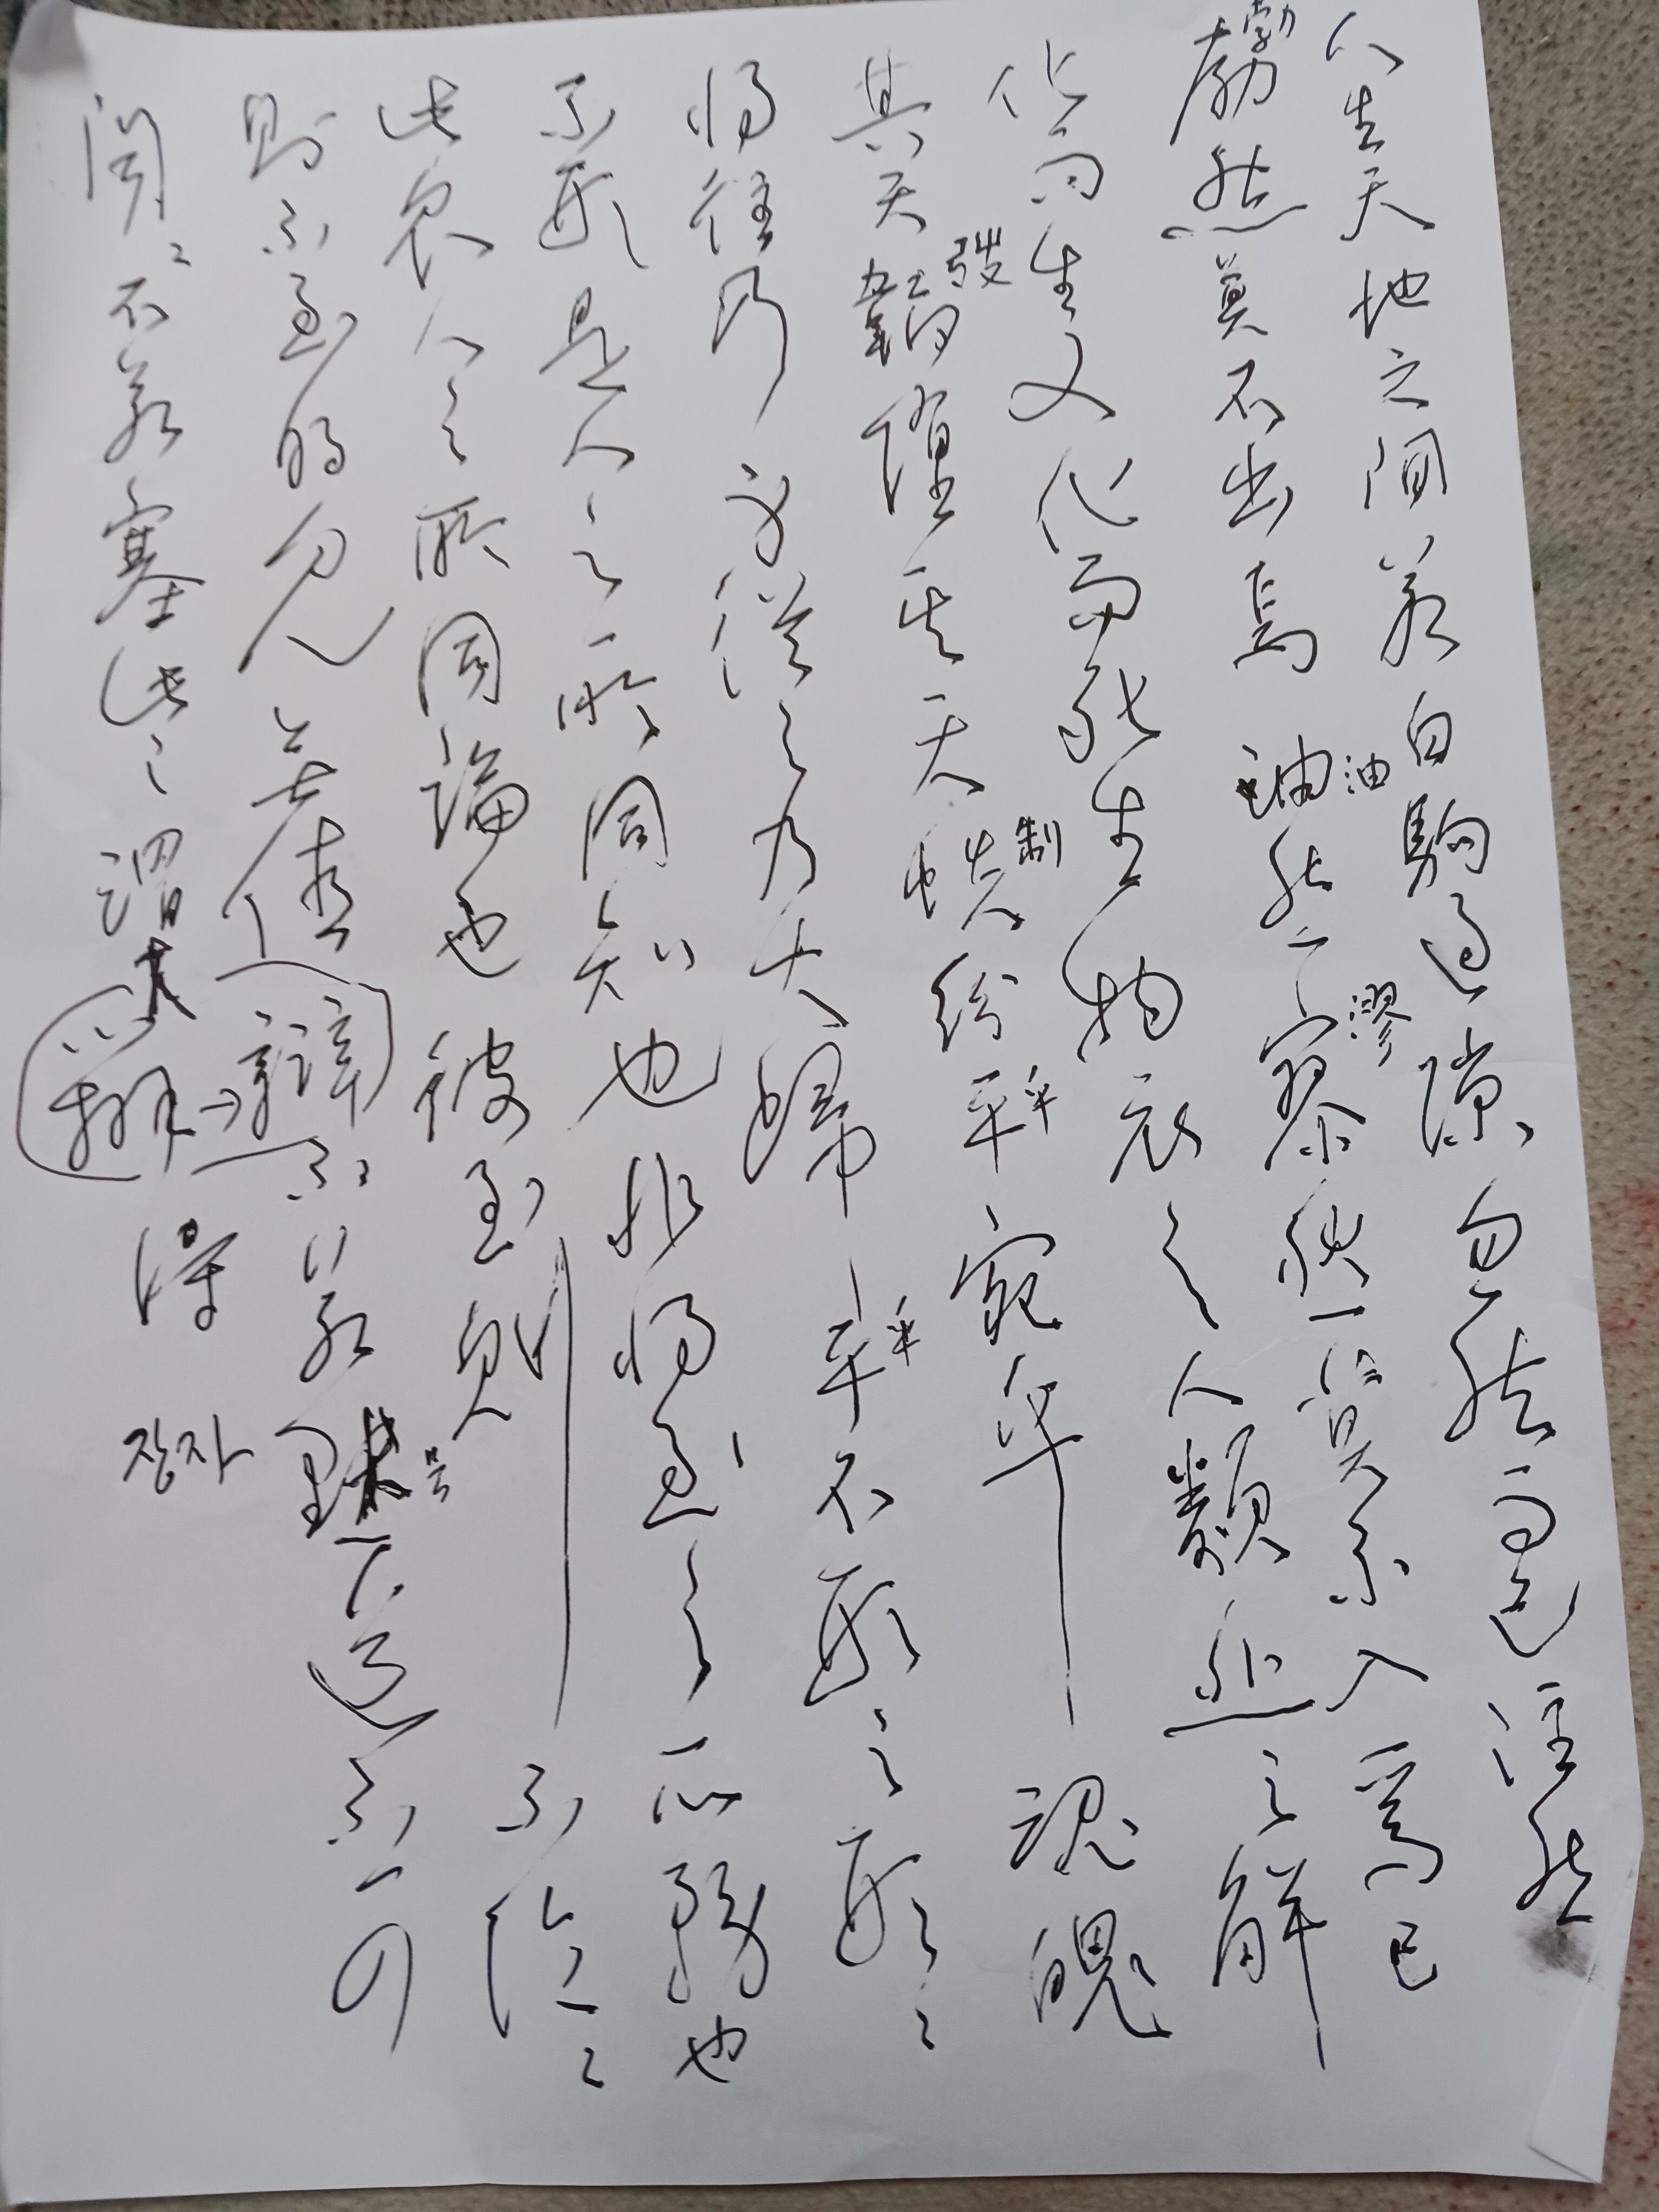 人生天地之間若白駒過隙勿然而已注然
勃然莫不出焉油然寥然莫不入焉已
化而生又化而死生物哀之人類悲之解
其天韜墮其天帙紛乎宛乎魂魄
將徃乃身從之乃大歸乎不形之形々
不形是人之所同知也非將至之所務也
此衆人之所同論也彼至則不論々
則不至明見无値辯不若默道不可
聞々不若塞此之謂大得 장자